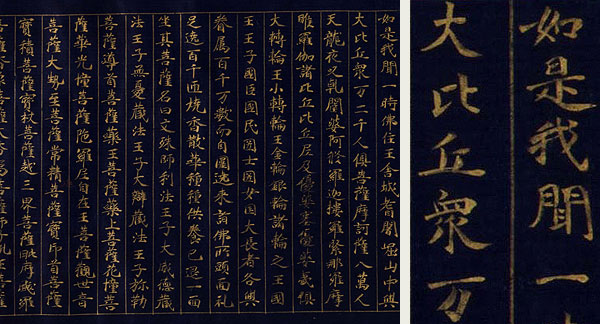 如是我聞一時佛住王舍城耆闍崛山中與
大比丘衆万二千人俱菩薩摩訶薩八萬人
天龍夜叉乾闥婆阿脩羅迦樓羅緊那羅摩
睺羅伽諸比丘比丘尼及優婆塞優婆夷俱
大轉輪王小轉輪王金輪銀輪諸輪之王國
王王子國臣國民國士國女國大長者各與
眷屬百千万數而自圍遶來詣佛所頭面礼
足遶百千匝燒香散華種種供養已退一面
坐其菩薩名曰文殊師利法王子大威德藏
法王子無憂藏法王子大辯藏法王子弥勒
菩薩導首菩薩藥王菩薩藥上菩薩花幢菩
薩華光幢菩薩陁羅尼自在王菩薩觀世音
菩薩大勢至菩薩常精進菩薩寶印首菩薩
寶積菩薩寶杖菩薩越三界菩薩毗摩颰羅
菩薩香象菩薩大香象菩薩師子吼
如是我聞一
大比丘衆万